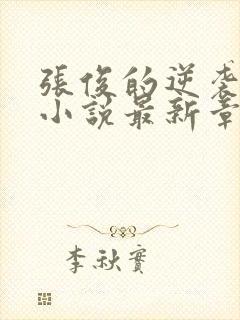 張俊的逆袭
小說最新章
李秋實